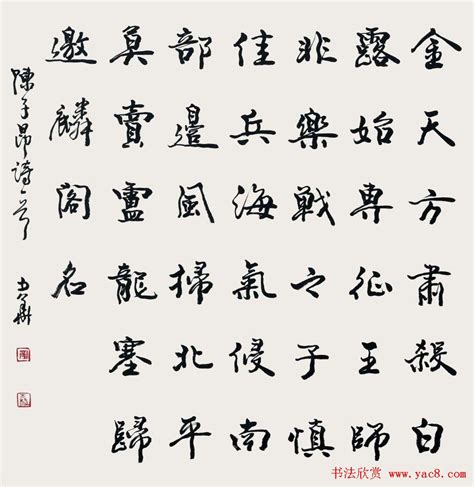 金天方肅殺白
露始專征王師
非樂戰之子慎
佳兵海氣侵南
部邊風掃北平
莫賣盧龍塞歸
邀麟閣名
陳子昂詩一首
书法欣赏 www.yac8.com